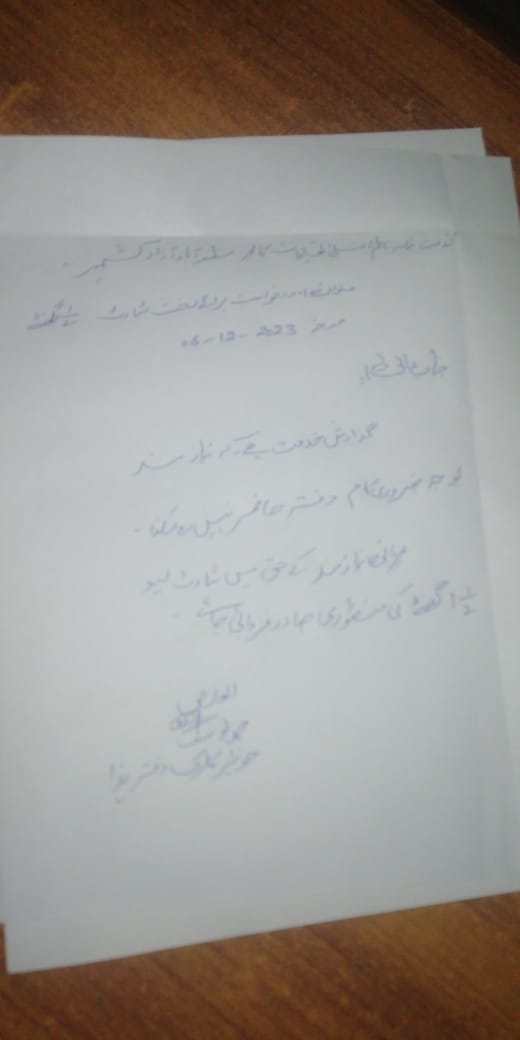 بخدمت جناب ناظم اعلیٰ تعلیمات کالجز مظفرآباد آزاد کشمیر۔
عنوان: درخواست برائے رخصت شارٹ لیو ½ 1 گھنٹہ
مورخہ 06-12-2023
جناب عالیٰ!
گزارش خدمت ہے کہ نیاز مند
بوجہ ضروری کام دفتر حاضر نہیں رہ سکتا۔
مہربانی نیازمند کے حق میں شارٹ لیو
½ 1 گھنٹہ کی منظوری صادر فرمائی جائے۔
العارض
محمد یوسف
جونیئر کلرک دفتر ہذا